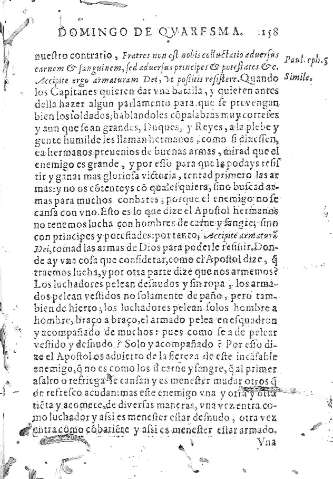 DOMINGO DE QVARESMA. 158
nuestro contrario, Fratres non est nobis colluctatio aduersus
carnem & sanguinem, sed aduersus principes & potestates & c.
Accipite ergo armaturam Dei, vt possitis resistere. Quando
los Capitanes quieren dar vna batalla, y quieren antes
della hazer algun parlamento para que se preuengan
bien los soldados, hablandoles cō palabras muy corteses
y aun que sean grandes, Duques, y Reyes, a la plebe y
gente humilde les llaman hermanos, como si dixessen,
ea hermanos preuenios de buenas armas, mirad que el
enemigo es grande, y por esso para que le podays resi-
stir y ganar mas gloriosa victoria, tentad primero las ar
mas: y no os cōtenteys cō qualesquiera, sino buscad ar-
mas para muchos conbates: porque el enemigo no se
cansa con vno. Esto es lo que dize el Apostol hermanos
no tenemos lucha con hombres de carne y sangre, sino
con principes y potestades: por tento, Accipite armaturā
Dei, tomad las armas de Dios para poderle resistir. Don-
de ay vna cosa que considerar, como el Apostol dize, q̄
traemos lucha, y por otra parte dize que nos armemos?
Los luchadores pelean desnudos y sin ropa, los arma-
dos pelean vestidos no solamente de paño, pero tam-
bien de hierro, los luchadores pelean solos hombre a
hombre, braço a braço, el armado pelea en esquadron
y acompañado de muchos: pues como se a de pelear
vestido y desnudo? Solo y acompañado? Por esso di-
ze el Apostol os aduierto de la fiereza de este incāsable
enemigo, q̄ no es como los d̄ carne y sangre, q̄ al primer
asalto o refriega se cansan y es menester mudar otros q̄
de refresco acudan: mas este enemigo vna y otra y otra
tiēta y acomete, de diuersas maneras, vna vez entra co-
mo luchador y assi es menester estar desnudo, otra vez
entra como cobatiēte y assi es menester estar armado.
Vna
Paul. eph. 6
Simile.